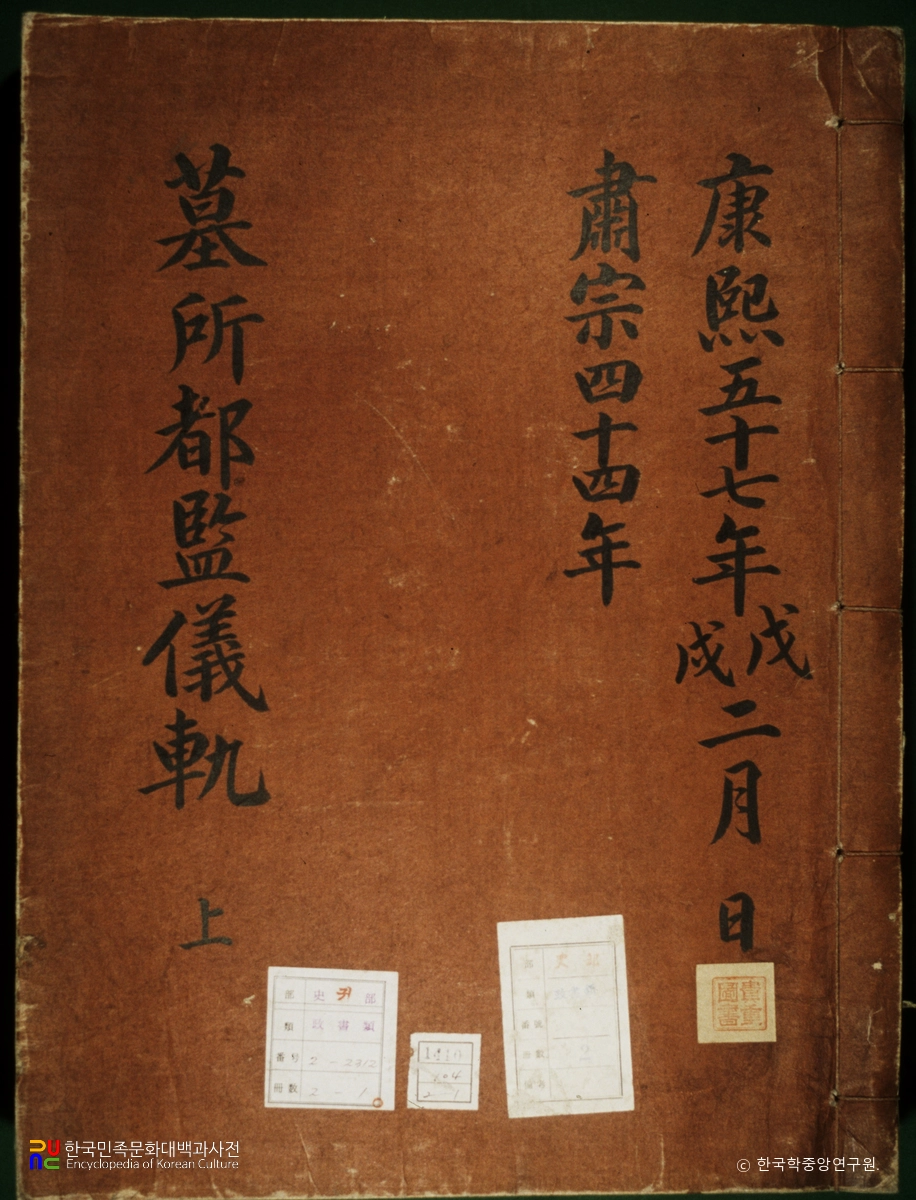 康熙五十七年戊戌二月 日
肅宗四十四年
墓所都監儀軌 上
貴重
圖書
部 史 部
類 政書類
番号 2-2312
冊数 2-1
한국민족문화대백과사전
Encyclopedia of Korean Culture
© 한국학중앙연구원